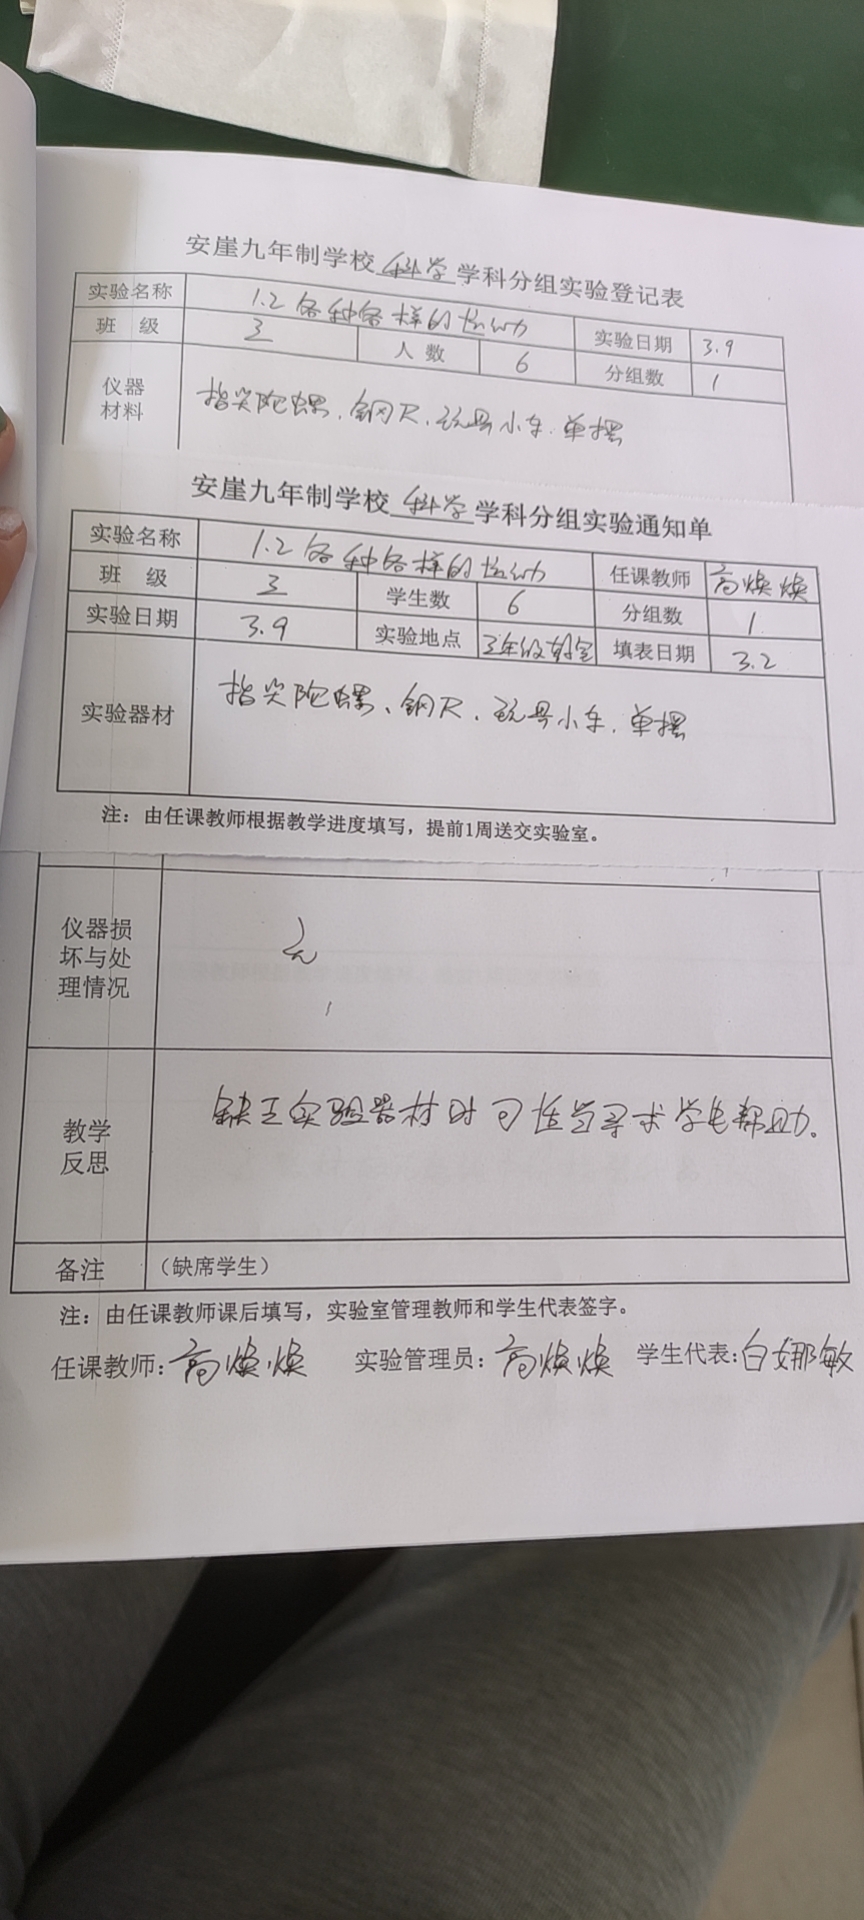 安崖九年制学校 科学 学科分组实验登记表
实验名称 1.2 各种各样的运动 实验日期 3.9
班 级 三 人 数 6 分组数 1
仪器材料 指尖陀螺、钢尺、玩具小车、单摆
安崖九年制学校 科学 学科分组实验通知单
实验名称 1.2 各种各样的运动 任课教师 高焕焕
班 级 三 学生数 6 分组数 1
实验日期 3.9 实验地点 三年级教室 填表日期 3.2
实验器材 指尖陀螺、钢尺、玩具小车、单摆
注：由任课教师根据教学进度填写，提前1周送交实验室。
仪器损坏与处理情况 无
教学反思 缺乏实验器材时可适当寻求学生帮助。
备注 （缺席学生）
注：由任课教师课后填写，实验室管理教师和学生代表签字。
任课教师：高焕焕 实验管理员：高焕焕 学生代表：白娜敏